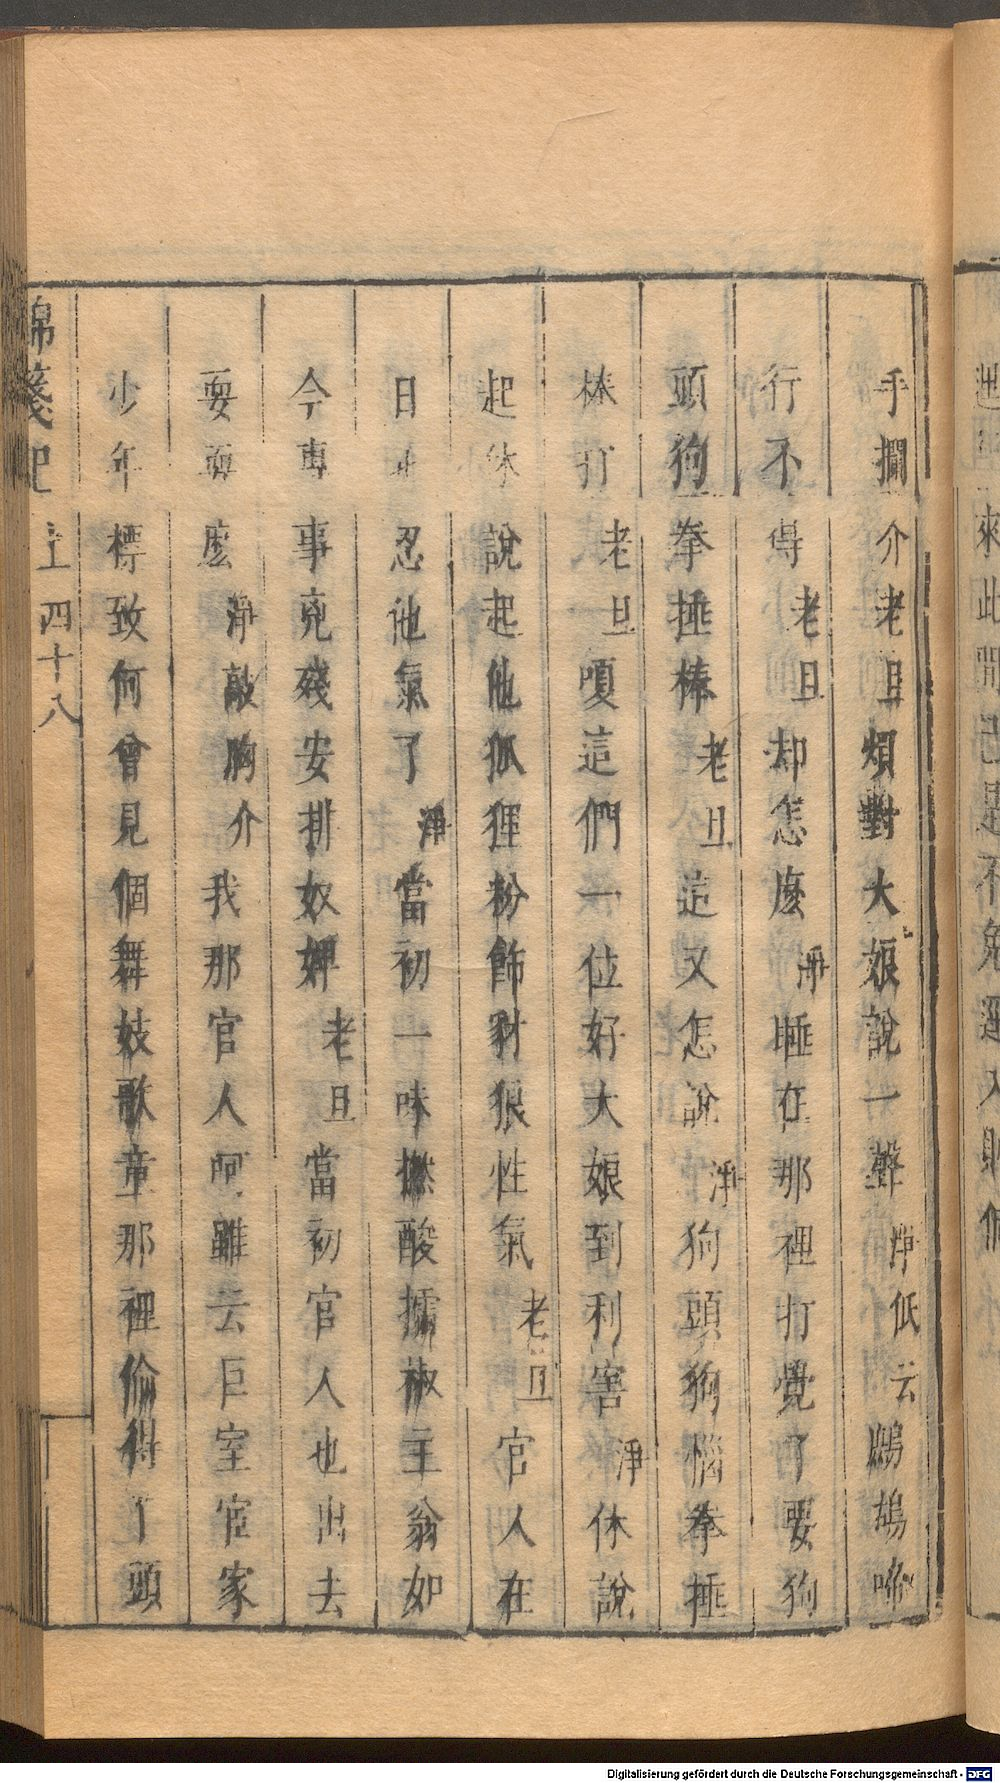 手攔介老旦煩對大娘說一聲淨低云鷓鴣啼
行不得老旦却怎麼淨睡在那裡打覺了要狗
頭狗拳捶棒老旦這又怎說淨狗頭狗惱拳捶
棒打老旦嗄這們一位好大娘到利害淨休說
起休說起他狐狸粉飾豺狼性氣老旦官人在
日也忍他氣了淨當初一味撚酸擂椒主翁如
今專事兇殘安排奴婢老旦當初官人也出去
耍耍麼淨敲胸介我那官人呵雖云巨室宦家
少年標致何曾見個舞妓歌童那裡偷得了頭
錦箋記 上 四十八
來此間已是不免
Digitalisierung gefördert durch die Deutsche Forschungsgemeinschaft - DFG